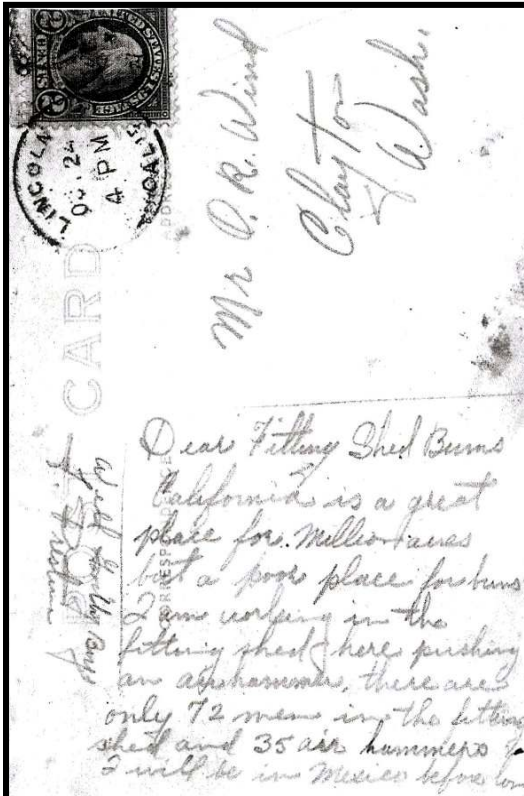 UNITED STATES POSTAGE
2 CENTS 2
LINCOLN
24
4 PM
CALIF
POST CARD
CORRESPONDENCE
Mr O. R. Wind
Clayton
Wash.
Dear Fitting Shed Bums
California is a great
place for Millionaires
but a poor place for bums
I am working in the
fitting shed here pushing
an airhammer, there are
only 72 men in the fitting
shed and 35 air hammers
I will be in Mexico before
Well